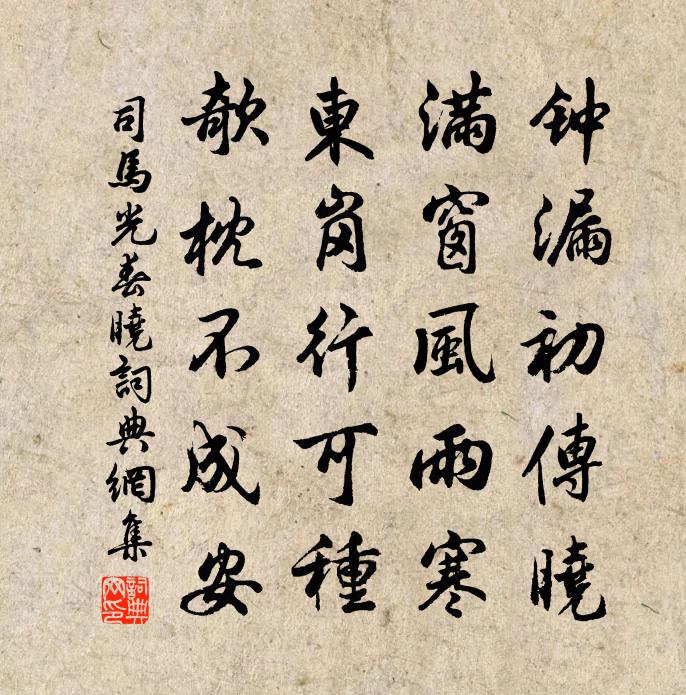 钟漏初傳曉
滿窗風雨寒
東崗行可種
欹枕不成安
司馬光春曉詞典網集
詞典网印